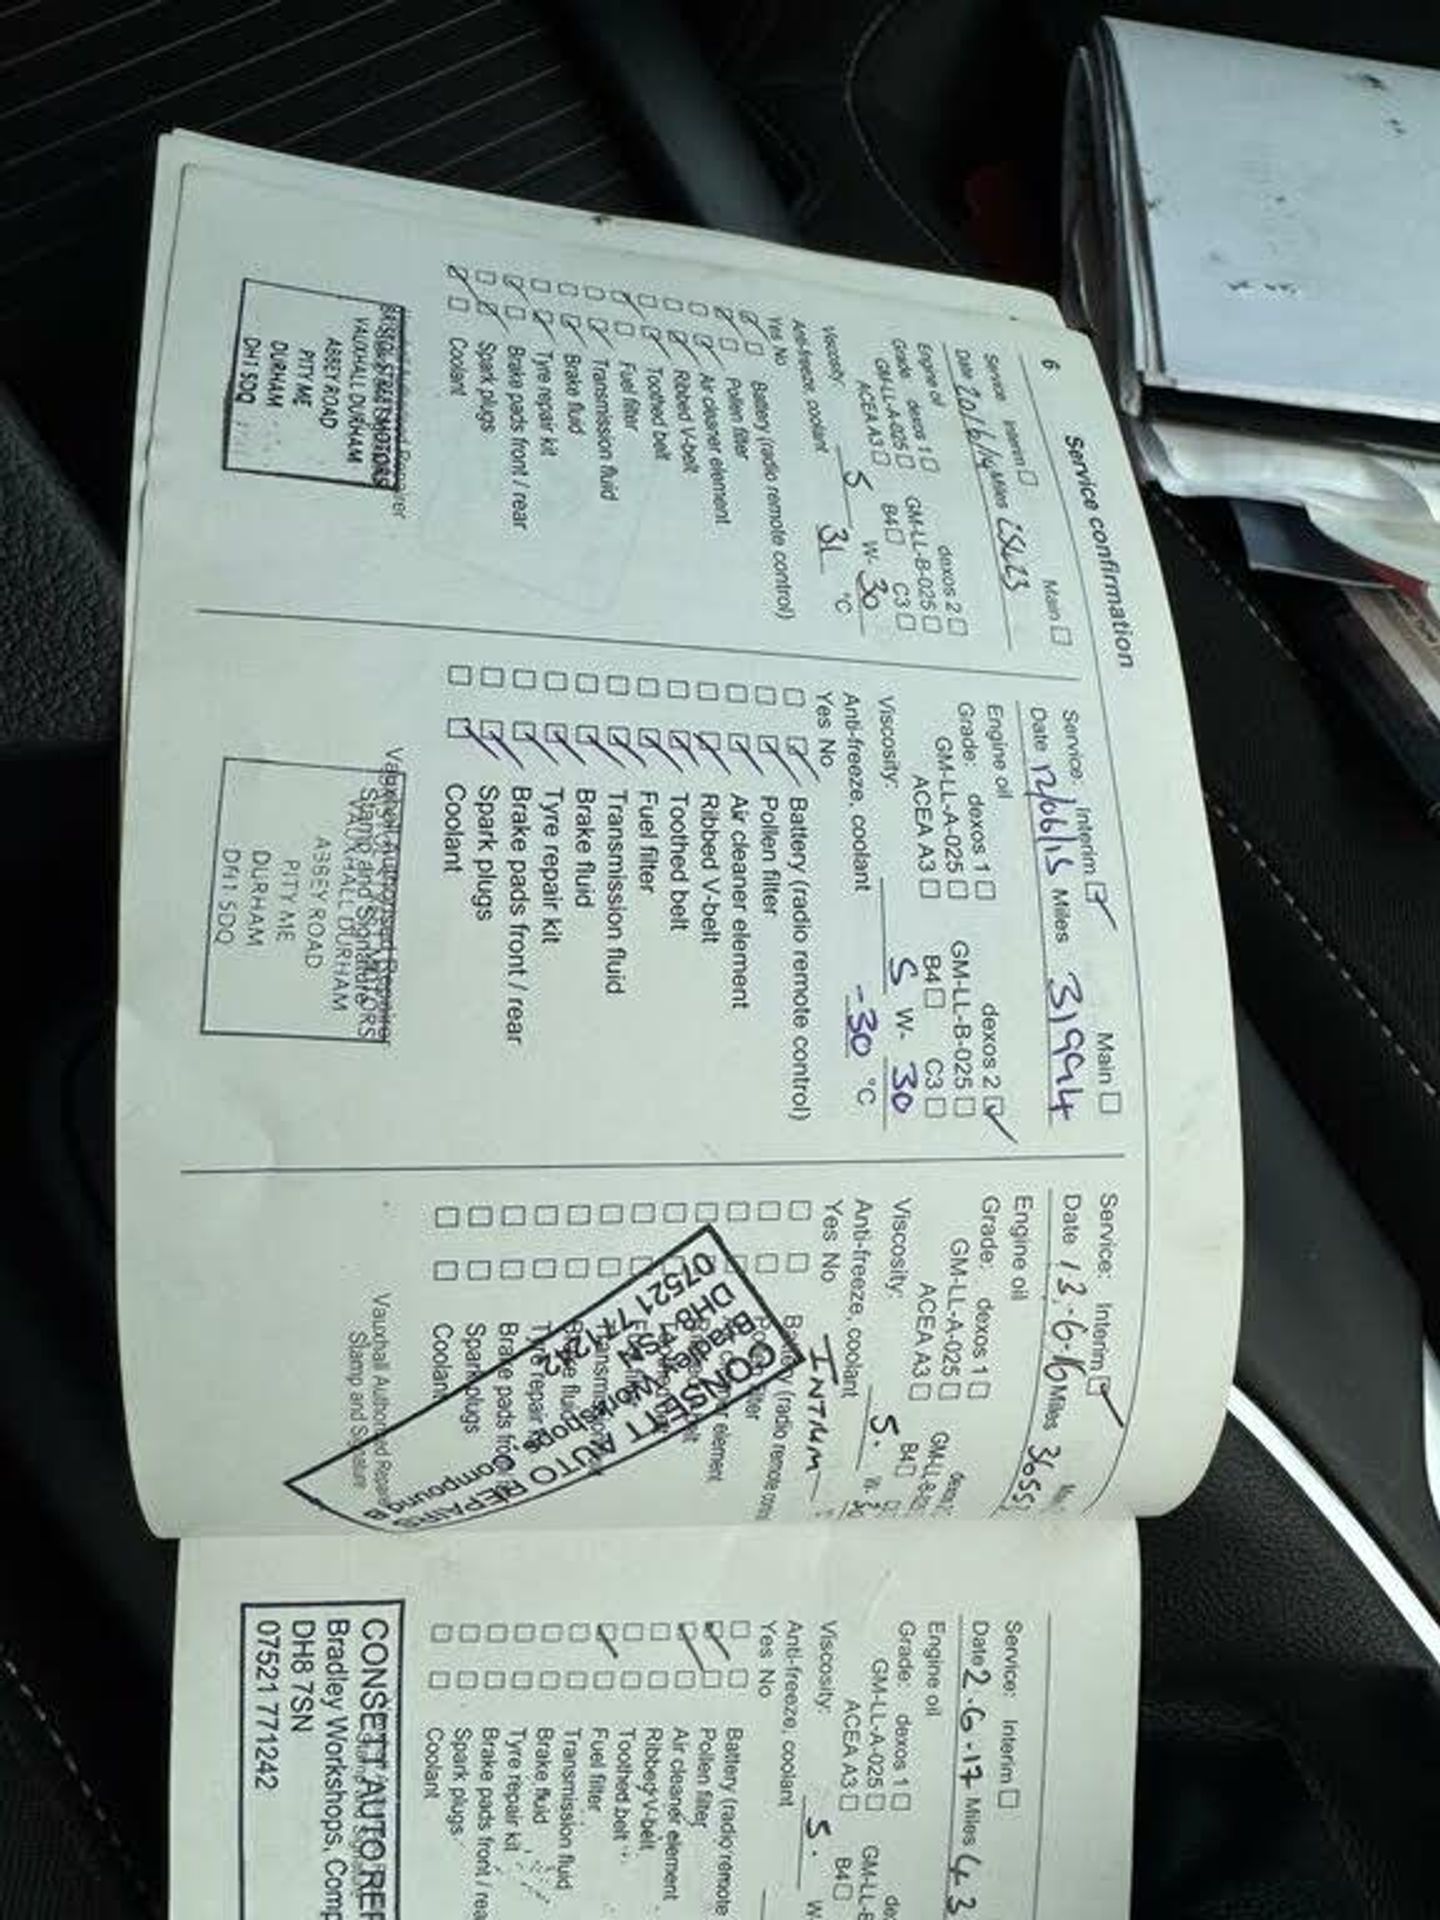 6
Service confirmation
Service Interim Main
Date 20/6/14 Miles
Engine oil
Grade: dexos 1 dexos 2
GM-LL-A-025 GM-LL-B-025
ACEA A3 B4 C3
Viscosity: 5 W- 30
Anti-freeze, coolant 31 °C
Yes No
Battery (radio remote control)
Pollen filter
Air cleaner element
Ribbed V-belt
Toothed belt
Fuel filter
Transmission fluid
Brake fluid
Tyre repair kit
Brake pads front / rear
Spark plugs
Coolant
VAUXHALL DURHAM
ABBEY ROAD
PITY ME
DURHAM
DH1 5DQ
Service: Interim Main
Date 12/06/15 Miles 31994
Engine oil
Grade: dexos 1 dexos 2
GM-LL-A-025 GM-LL-B-025
ACEA A3 B4 C3
Viscosity: 5 W- 30
Anti-freeze, coolant -30 °C
Yes No
Battery (radio remote control)
Pollen filter
Air cleaner element
Ribbed V-belt
Toothed belt
Fuel filter
Transmission fluid
Brake fluid
Tyre repair kit
Brake pads front / rear
Spark plugs
Coolant
Vauxhall Authorised Repairer
Stamp and Signature
VAUXHALL DURHAM
ABBEY ROAD
PITY ME
DURHAM
DH1 5DQ
Service: Interim
Date 13.6.16 Miles
Engine oil
Grade: dexos 1
GM-LL-A-025
ACEA A3 B4
Viscosity: 5. W. 30
Anti-freeze, coolant
Yes No
Brake pads
Spark plugs
Coolant
CONSETT AUTO REPAIRS
Bradley Workshops Compound B
DH8 7SN
07521 771242
Vauxhall Authorised Repairer
Stamp and Signature
Service: Interim
Date 2.6.17 Miles 43
Engine oil
Grade: dexos 1
GM-LL-A-025
ACEA A3 B4
Viscosity: 5. W-
Anti-freeze, coolant
Yes No
Battery (radio remote
Pollen filter
Air cleaner element
Ribbed V-belt
Toothed belt
Fuel filter
Transmission fluid
Brake fluid
Tyre repair kit
Brake pads front / rea
Spark plugs
Coolant
CONSETT AUTO REP
Bradley Workshops, Comp
DH8 7SN
07521 771242